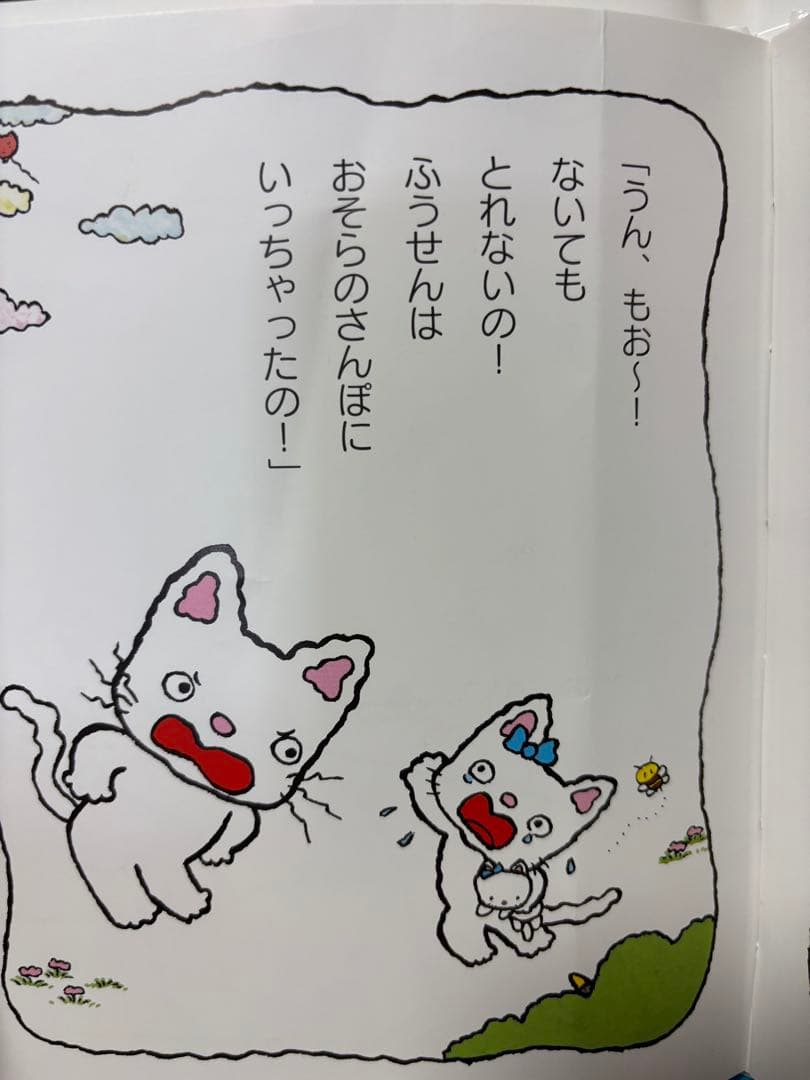 「うん、もお～！
ないても
とれないの！
ふうせんは
おそらのさんぽに
いっちゃったの！」